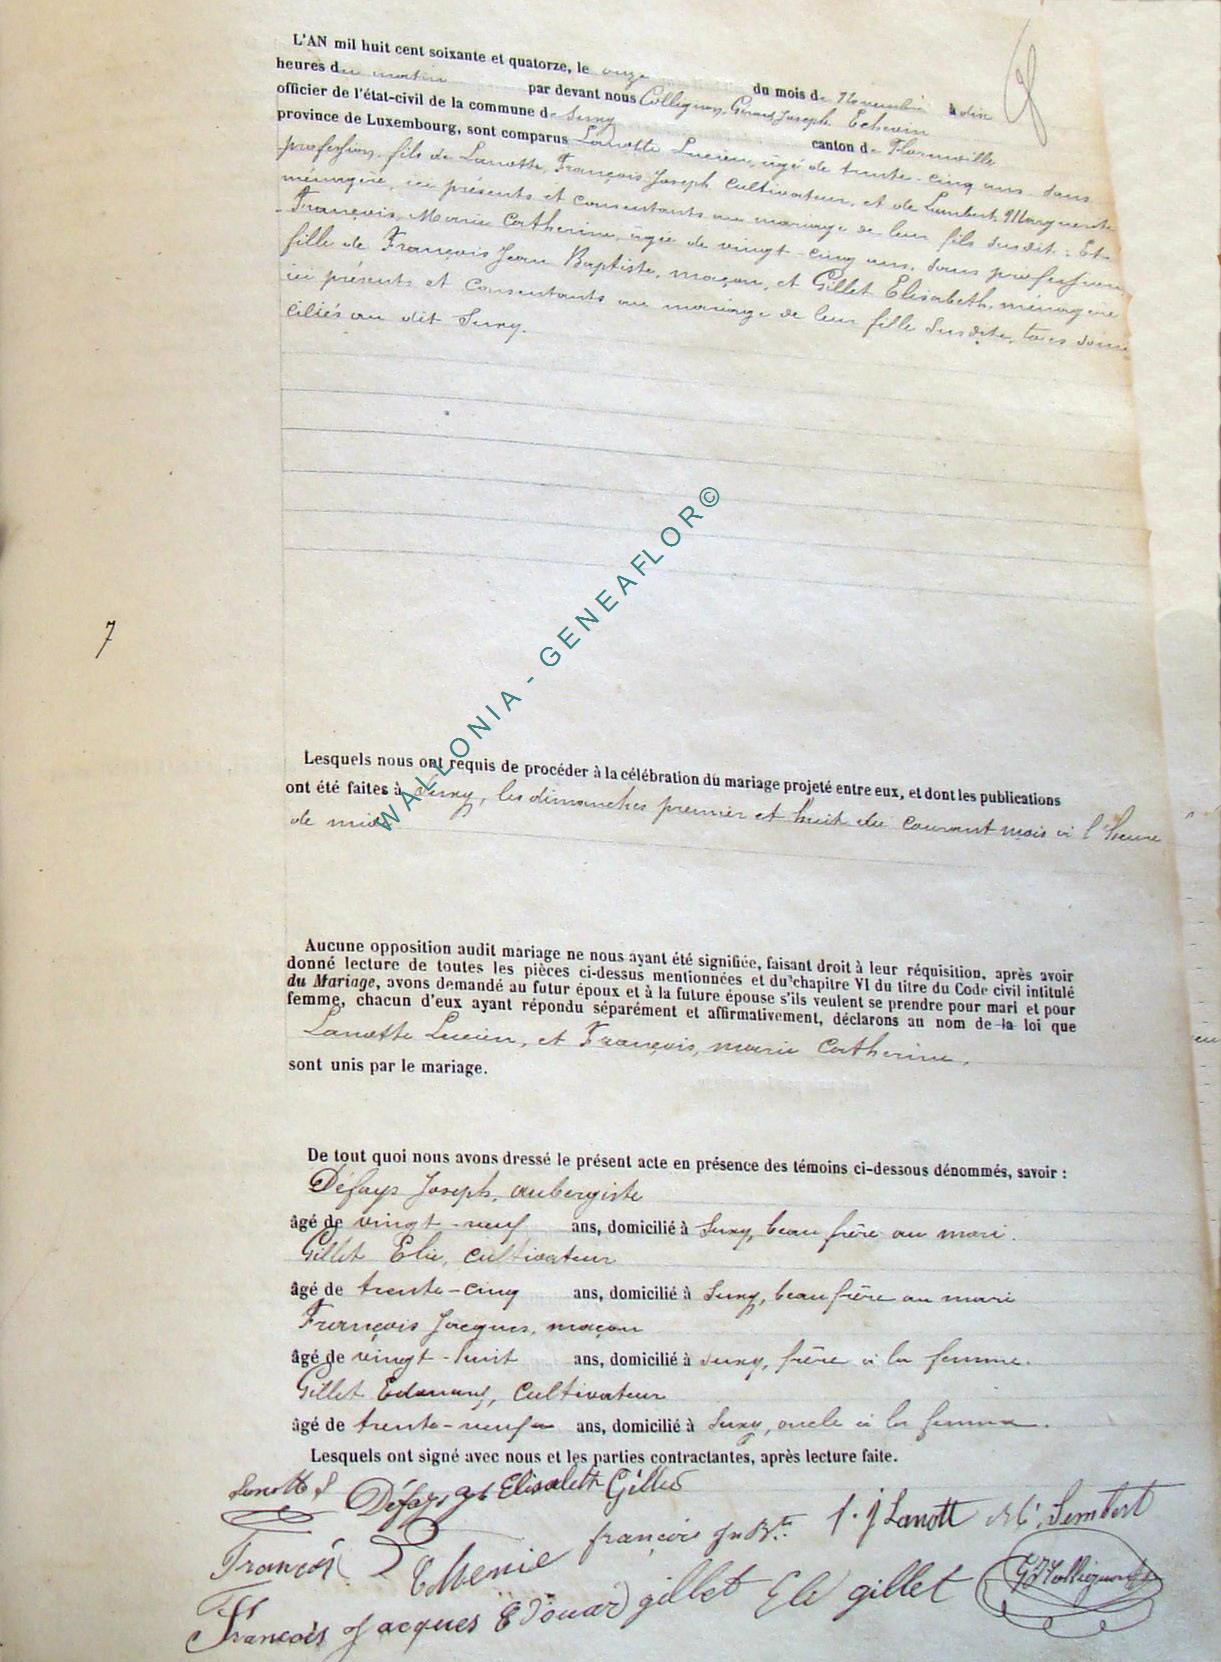 L'AN mil huit cent soixante et quatorze, le onze du mois de Novembre à dix
heures du matin par devant nous Collignon, Gérard Joseph Echevin
officier de l'état-civil de la commune de Suxy canton de Florenville
province de Luxembourg, sont comparus Lanotte Lucien, âgé de trente-cinq ans sans
profession, fils de Lanotte, François-Joseph, cultivateur, et de Lambert, Marguerite
ménagère, ici présents et consentants au mariage de leur fils susdit ; Et
François, Marie Catherine, âgée de vingt-cinq ans, sans profession,
fille de François Jean Baptiste, maçon, et Gillet Elisabeth, ménagère
ici présents et consentants au mariage de leur fille susdite, tous domi
ciliés au dit Suxy.
WALLONIA - GENEAFLOR©
7
Lesquels nous ont requis de procéder à la célébration du mariage projeté entre eux, et dont les publications
ont été faites à Suxy, les dimanches premier et huit du courant mois à l'heure
de midi
Aucune opposition audit mariage ne nous ayant été signifiée, faisant droit à leur réquisition, après avoir
donné lecture de toutes les pièces ci-dessus mentionnées et du chapitre VI du titre du Code civil intitulé
du Mariage, avons demandé au futur époux et à la future épouse s'ils veulent se prendre pour mari et pour
femme, chacun d'eux ayant répondu séparément et affirmativement, déclarons au nom de la loi que
Lanotte Lucien, et François, marie Catherine,
sont unis par le mariage.
De tout quoi nous avons dressé le présent acte en présence des témoins ci-dessous dénommés, savoir :
Défays Joseph, aubergiste
âgé de vingt-neuf ans, domicilié à Suxy, beau frère au mari.
Gillet Elie, cultivateur
âgé de trente-cinq ans, domicilié à Suxy, beau frère au mari
François Jacques, maçon
âgé de vingt-huit ans, domicilié à Suxy, frère à la femme.
Gillet Edouard, cultivateur
âgé de trente-neuf ans, domicilié à Suxy, oncle à la femme.
Lesquels ont signé avec nous et les parties contractantes, après lecture faite.
Lanotte L Défays Elisabeth Gillet
François françois Jn Bte f. j Lanott Lembert
François Jacques Edouard gillet Elé gillet